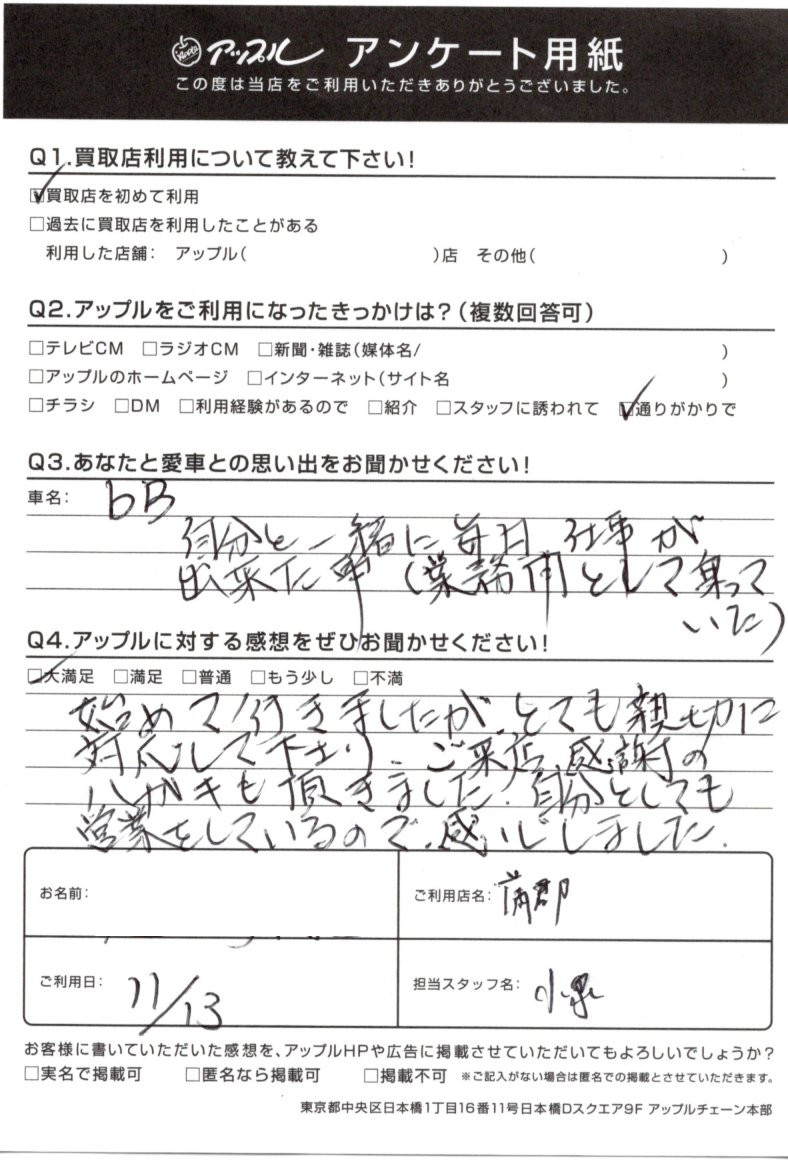 Apple アップル アンケート用紙
この度は当店をご利用いただきありがとうございました。
Q1.買取店利用について教えて下さい!
☑買取店を初めて利用
□過去に買取店を利用したことがある
利用した店舗: アップル( )店 その他( )
Q2.アップルをご利用になったきっかけは?(複数回答可)
□テレビCM □ラジオCM □新聞・雑誌(媒体名/ )
□アップルのホームページ □インターネット(サイト名 )
□チラシ □DM □利用経験があるので □紹介 □スタッフに誘われて ☑通りがかりで
Q3.あなたと愛車との思い出をお聞かせください!
車名: bB
自分と一緒に毎日 仕事が
出来た車(業務用として乗って
いた)
Q4.アップルに対する感想をぜひお聞かせください!
☑大満足 □満足 □普通 □もう少し □不満
始めて行きましたが、とても親切に
対応して下さり、ご来店感謝の
ハガキも頂きました。自分としても
営業をしているので、感心しました。
お名前:
ご利用店名: 蒲郡
ご利用日: 11/13
担当スタッフ名: 小泉
お客様に書いていただいた感想を、アップルHPや広告に掲載させていただいてもよろしいでしょうか?
□実名で掲載可 □匿名なら掲載可 □掲載不可 ※ご記入がない場合は匿名での掲載とさせていただきます。
東京都中央区日本橋1丁目16番11号日本橋Dスクエア9F アップルチェーン本部